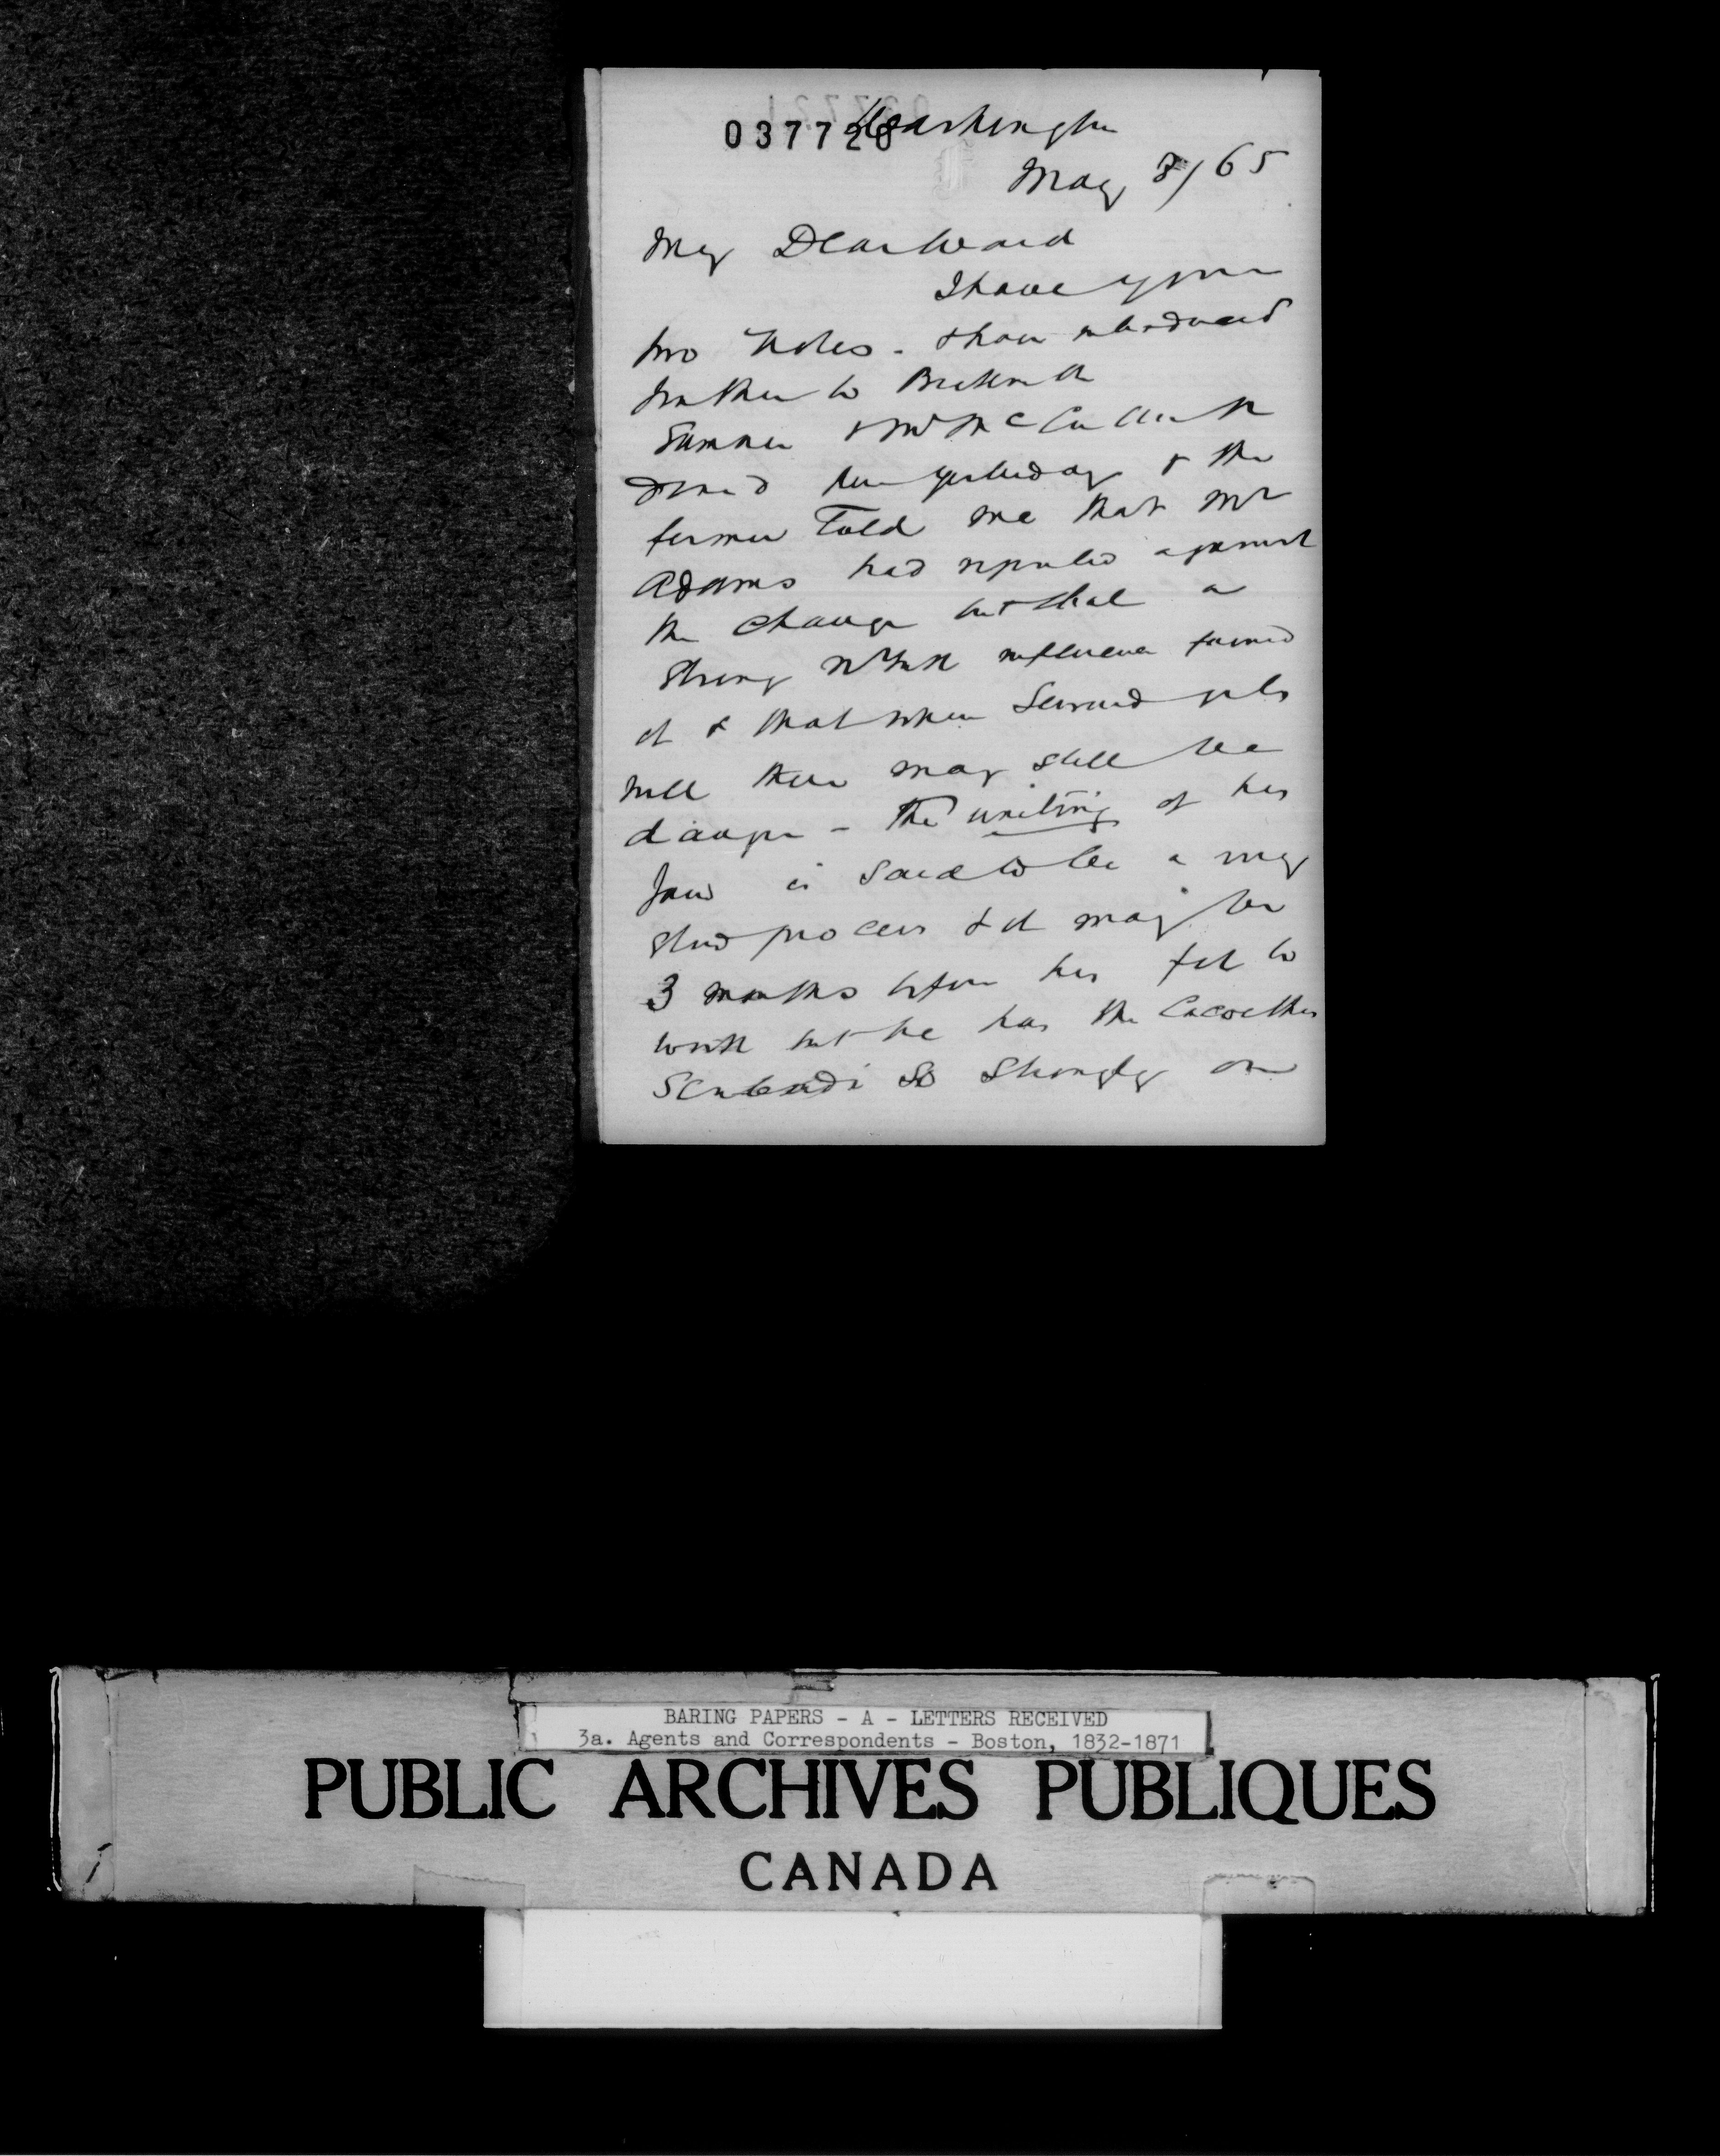 037728
Washington
May 8/65
My Dear Ward
I have your
two Notes. & have introduced
to
Sumner & Mr McCulloch
dined here yesterday & the
former Told me that Mr
Adams had reported against
the change but that a
strong influence favored
it & that when Seward gets
well there may still be
danger - The uniting of his
Jaw is said to be a very
slow process & it may be
3 months before his fit to
work but he has the Cacoethes
Scribendi so strongly on
BARING PAPERS - A - LETTERS RECEIVED
3a. Agents and Correspondents - Boston, 1832-1871
PUBLIC ARCHIVES PUBLIQUES
CANADA